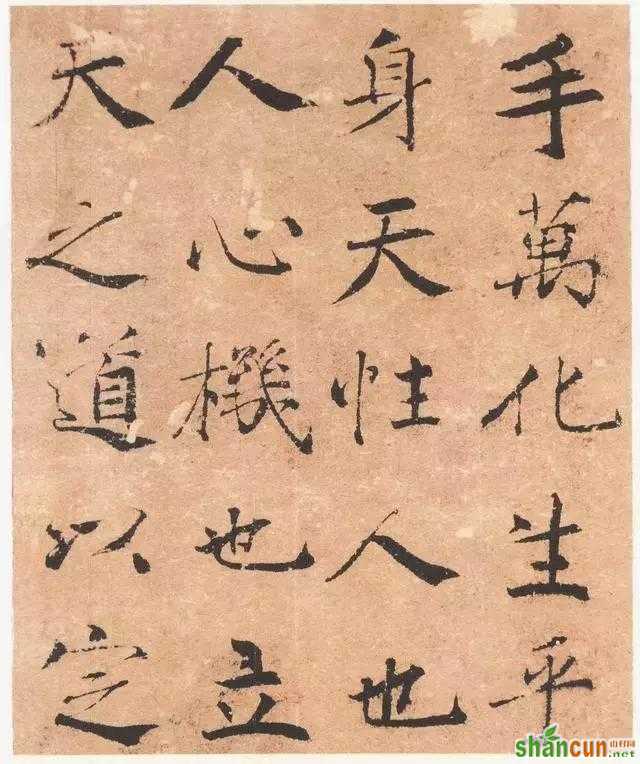 手萬化生乎
身天性人也
人心機也立
天之道以定
shancun
山村网
.net